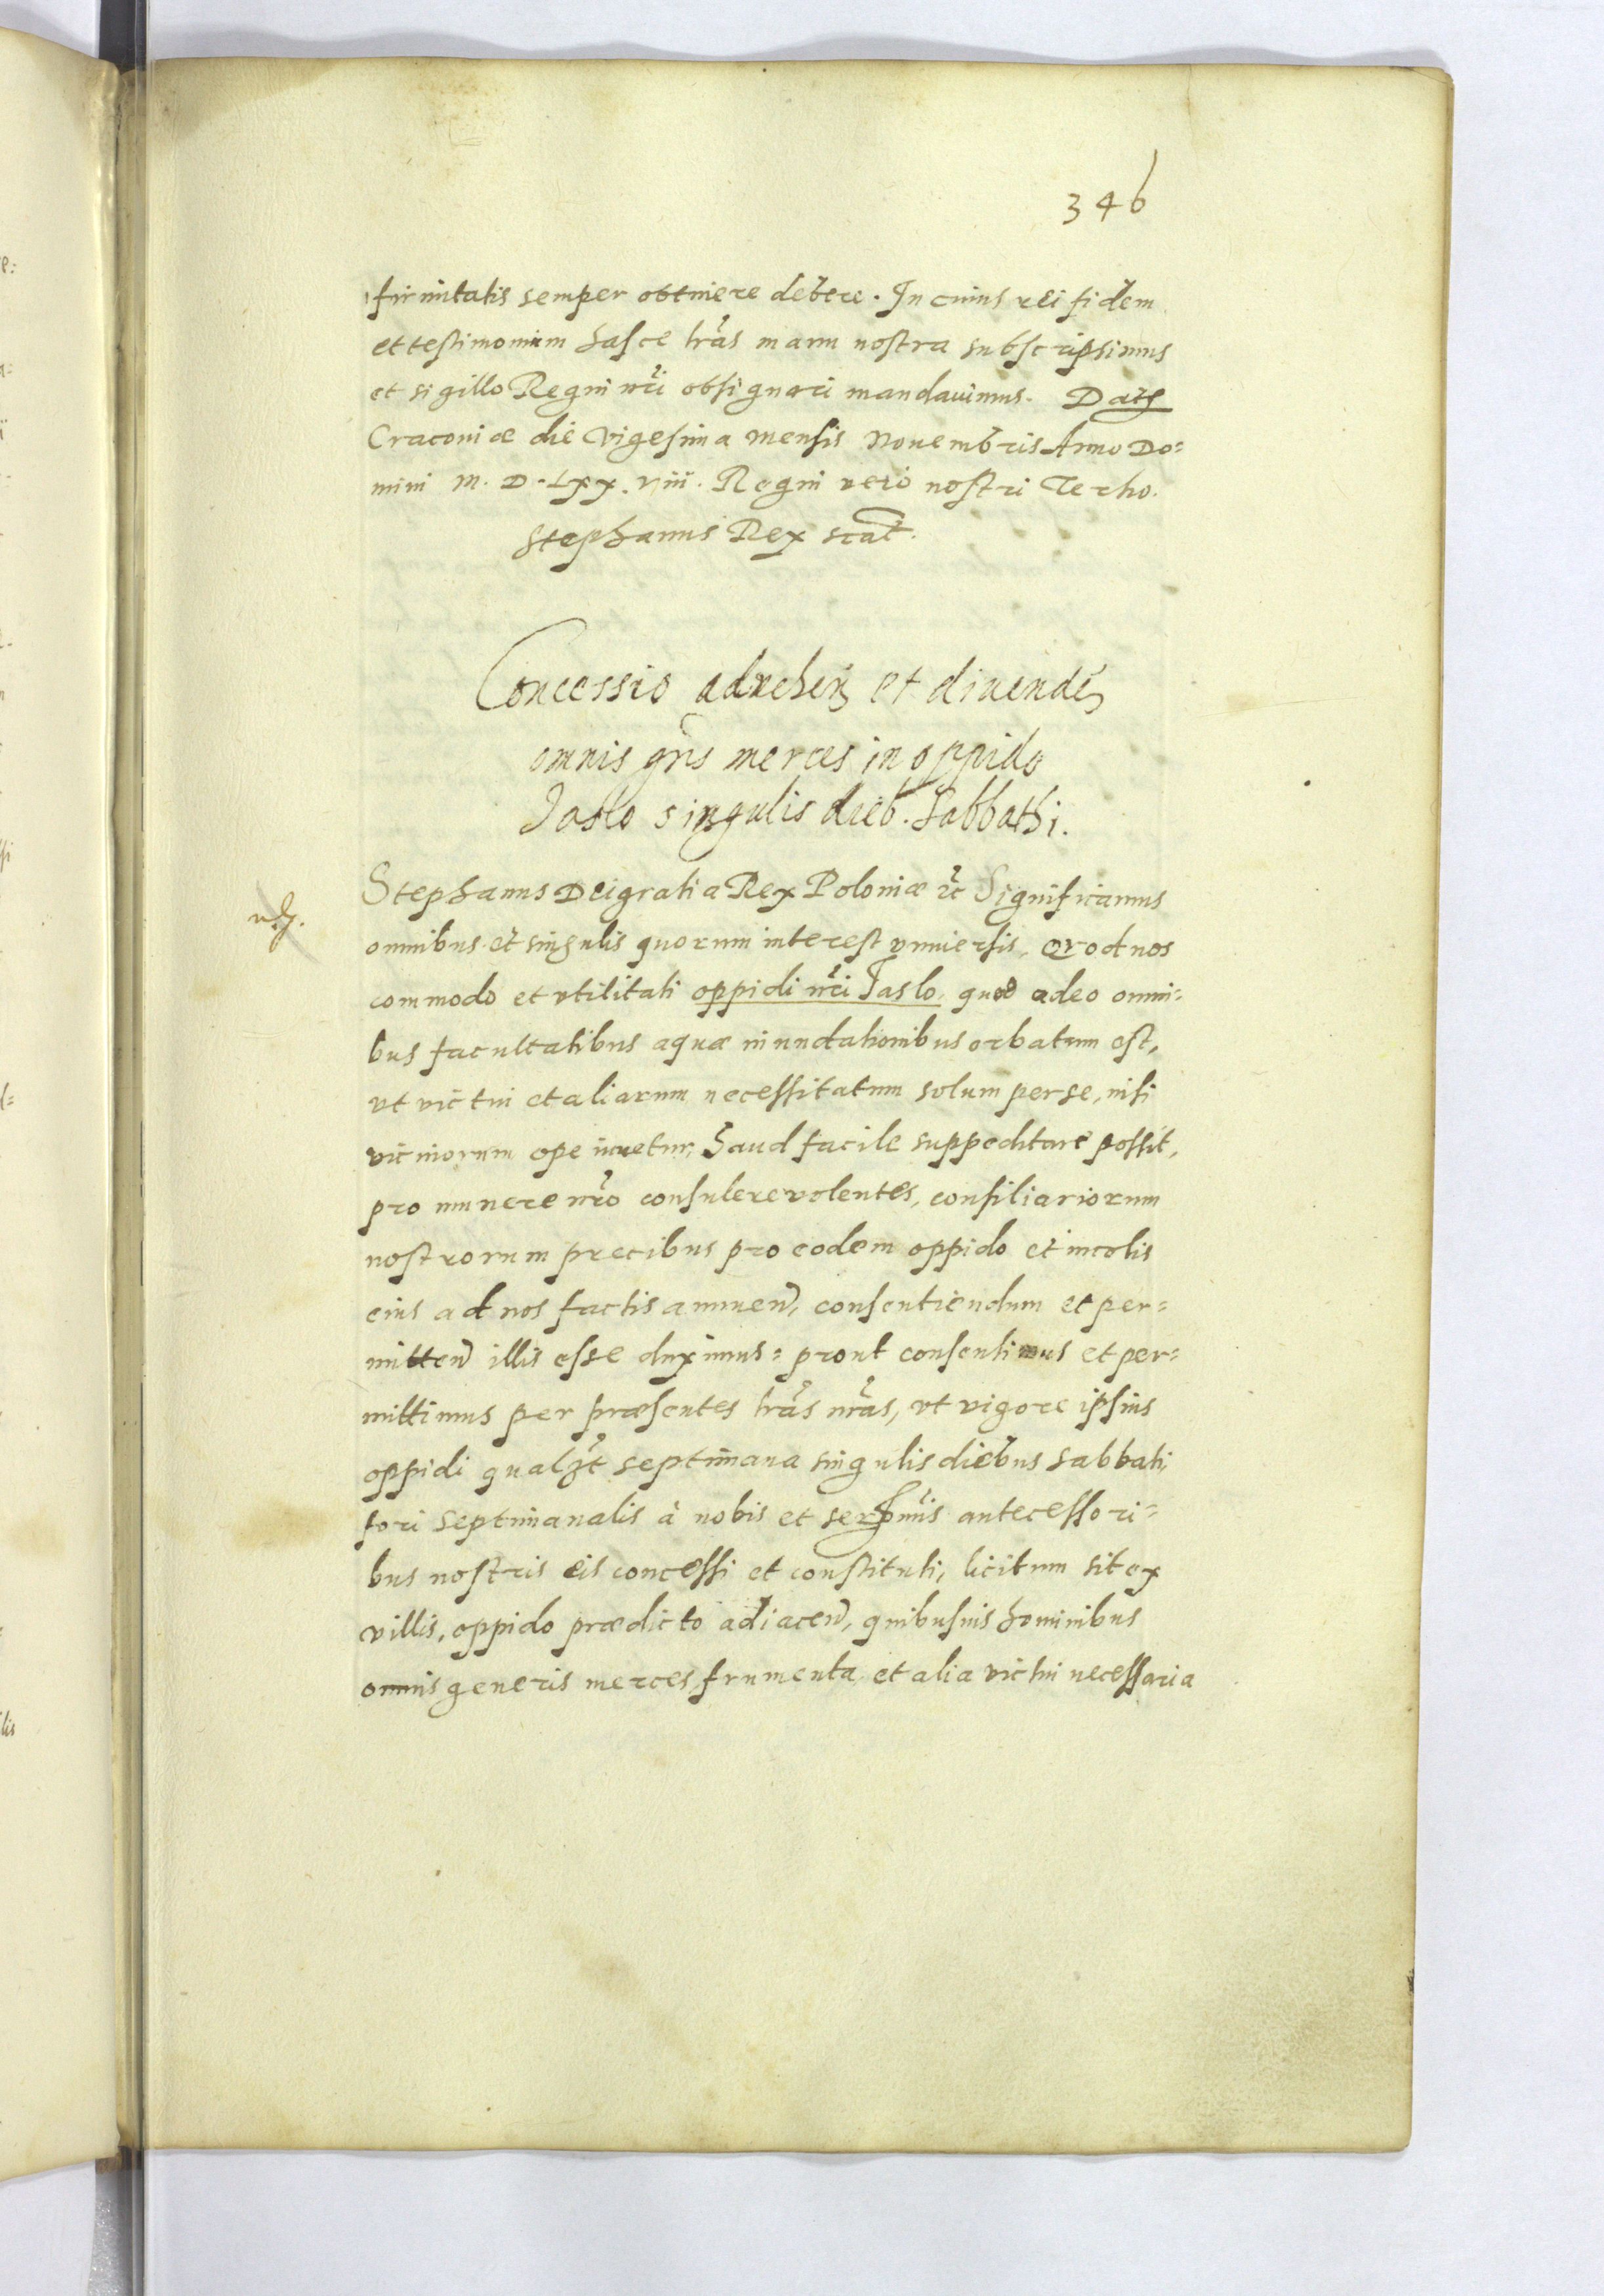 346
firmitatis semper obtinere debere. In cuius rei fidem
et testimonium hasce lrãs manu nostra subscripsimus
et sigillo Regni nrĩ obsignari mandavimus. Dat
Cracoviæ die vigesima mensis Novembris Anno Do=
mini M. D. LXX. viii. Regni vero nostri Tertio.
Stephanus Rex scat̃.
Concessio advehen̄ et divenden̄
omnis gñis merces in oppido
Jaslo singulis dieb. Sabbathi.
Stephanus Dei gratia Rex Poloniæ etc̃ Significamus
omnibus et singulis quorum interest vniuersis, Quod nos
commodo et vtilitati oppidi nrĩ Jaslo, quod adeo omni=
bus facultatibus aquæ inundationibus orbatum est,
vt victui et aliarum necessitatum solum per se, nisi
vicinorum ope iuuetur, haud facile suppeditare possit,
pro munere nrõ consulere volentes, consiliariorum
nostrorum precibus pro eodem oppido et incolis
eius ad nos factis annuen̄, consentiendum et per=
mitten̄ illis esse duximus: prout consentimus et per=
mittimus per præsentes lrãs nrãs, vt vigore ipsius
oppidi qualʒt septimana singulis diebus sabbati,
fori septimanalis à nobis et sermis antecessori=
bus nostris eis concessi et constituti, licitum sit ex
villis, oppido prædicto adiacen̄, quibusuis hominibus
omnis generis merces, frumenta et alia victui necessaria